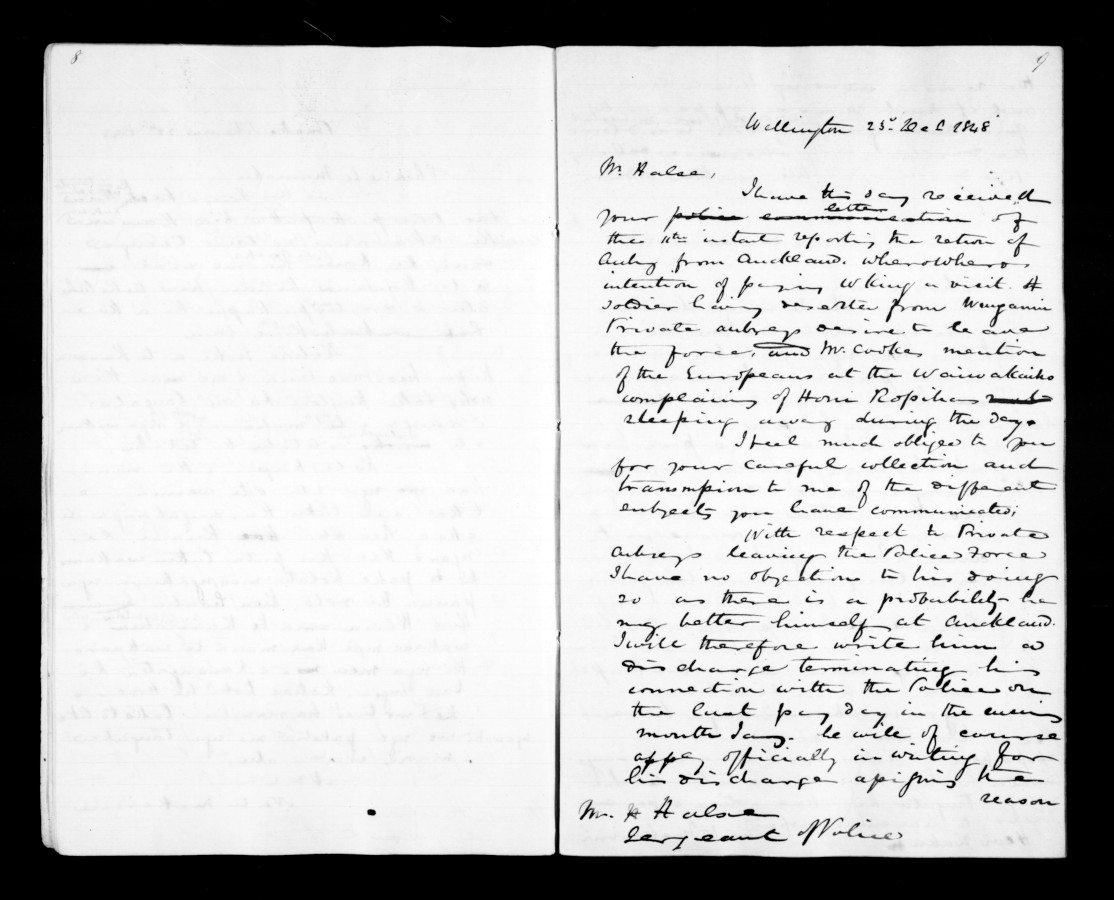 8
9
Wellington 23d. Dec 1848
Mr Halse,
I have this day received
your police communication letter of
the 11th instant reporting the return of
Aubrey from Auckland.
intention of paying W King a visit. A
soldier having deserted from Wanganui
Private Aubreys desire to leave
the force, and Mr. Cookes mention
of the Europeans at the Waiwakaiho
complaining of Honi Ropihas
sleeping away during the day.
I feel much obliged to you
for your careful collection and
transmission to me of the different
subjects you have communicated;
With respect to Private
Aubreys leaving the Police Force
I have no objection to his doing
so as there is a probability he
may better himself at Auckland.
I will therefore write him a
discharge terminating his
connection with the Police on
the last pay day in the ensuing
month Jany. he will of course
apply officially in writing for
his discharge assigning the
reason
Mr. H Halse
Sergeant of Police